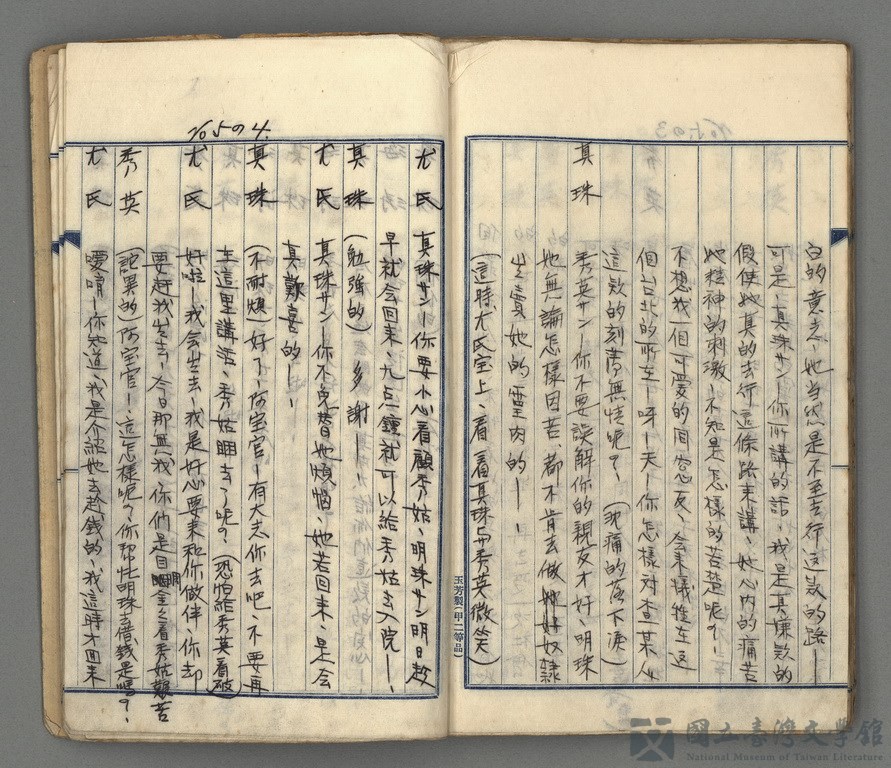 白的意志、她当然是不至去行這款的路——
可是、真珠サン—你所講的話、我是真嫌款的
假使她真的去行這條路来講、她心内的痛苦
她精神的刺激—不知是怎樣的苦楚呢?—
不想我一個可愛的同窓友、会来犠牲在這
個台北的所在—呀—天—你怎樣对查某人
這款的刻薄無情呢?、(沈痛的落下淚)
真珠 秀英サン—你不要誤解你的親友才好、明珠
她無論怎樣困苦、都不肯去做她奴隷
出賣她的靈肉的——
(這時、尤氏室上、看一看真珠与秀英微笑)
玉芳製(甲二等品)
70.5の3
70.5の4.
尤氏 真珠サン—你要小心看顧秀姑、明珠サン明日趁
早就会回来、九点鐘就可以給秀姑去入院—、
真珠 (勉強的)多謝——
尤氏 真珠サン—你不免替她煩惱、她若回来、是会
真歡喜的——
真珠 (不耐煩)好了、阿宝官—有大志你去吧、不要再
在這里講話、秀姑睏去了呢?(恐怕給秀英看破)
尤氏 好啦—我会出去、我是好心要来和你做伴、你却
要趕我出去、今日那無我、你們是目睭金金看秀姑艱苦
秀英 (詫異的)阿宝官—、這怎樣呢?你帮忙明珠去借錢是嗎?、
尤氏 噯唷—你知道、我是介紹她去趁錢的、我這時才回来
國立臺灣文學館
National Museum of Taiwan Literature